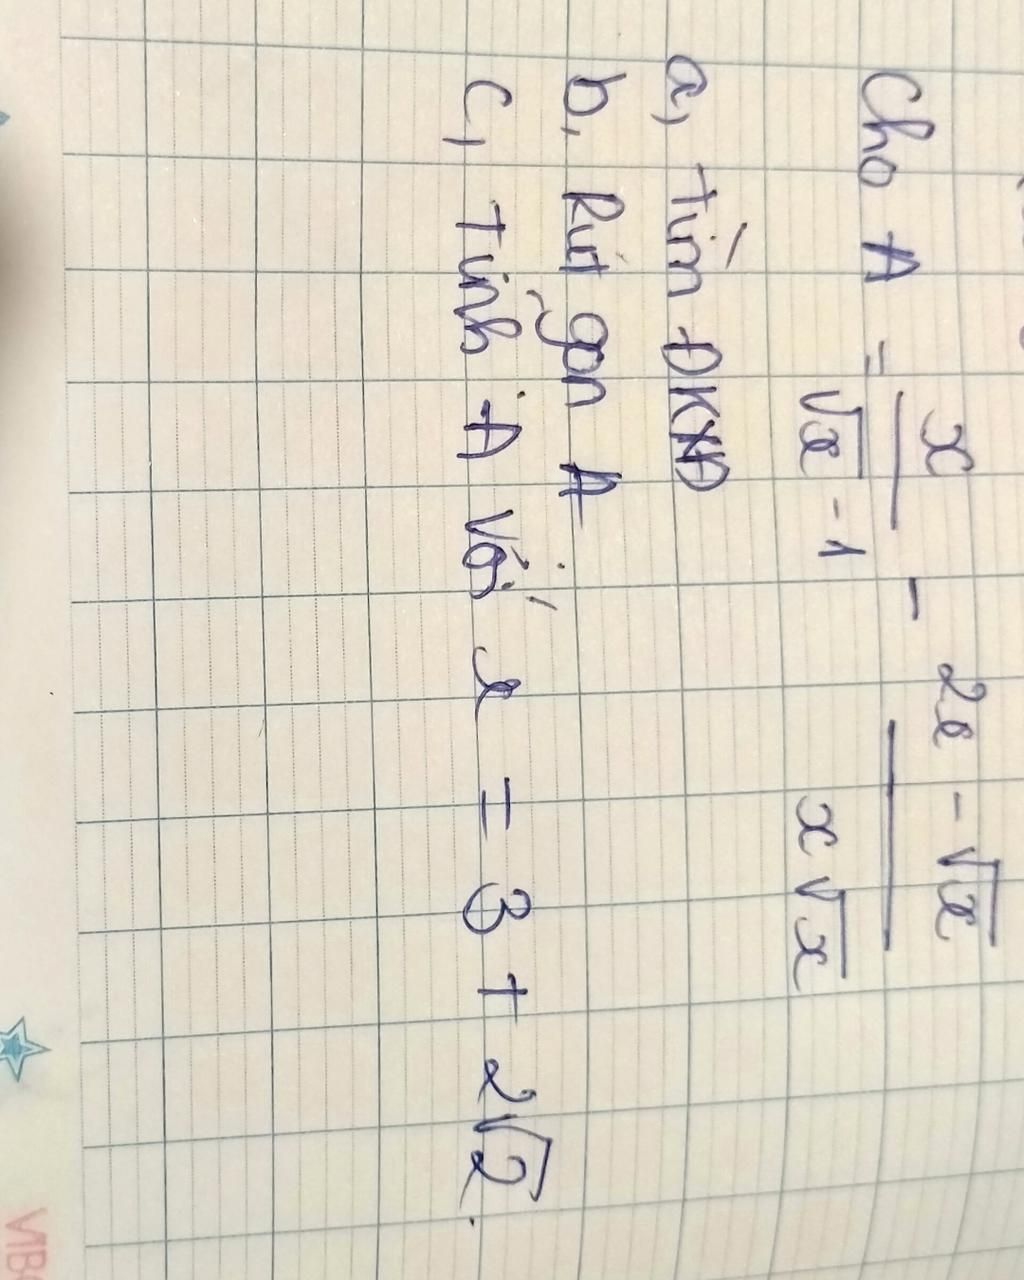 Cho A = x/(√x - 1) - (2x - √x)/(x√x)
a, Tìm ĐKXĐ
b, Rút gọn A
c, Tính A với x = 3 + 2√2.